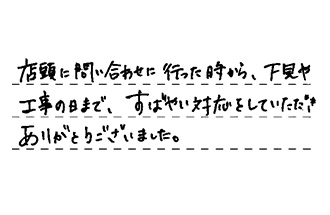 店頭に問い合わせに行った時から、下見や
工事の日まで、すばやい対応をしていただき
ありがとうございました。